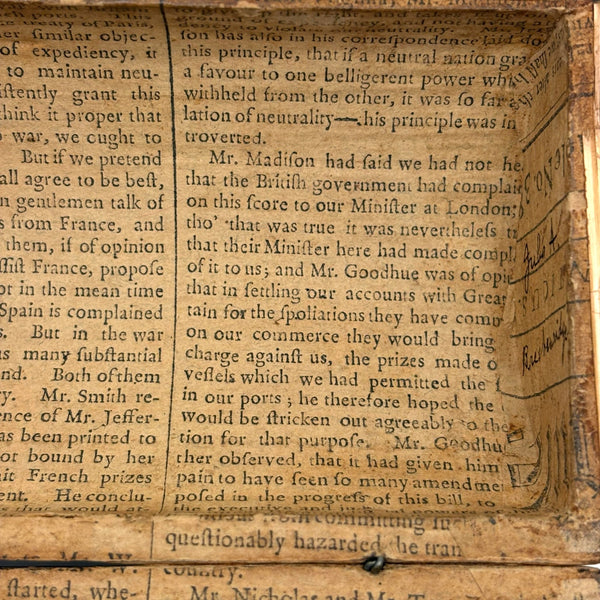 reaty of Paris,
her similar objec-
of expediency, it
to maintain neu-
istently grant this
think it proper that
o war, we ought to
But if we pretend
all agree to be beſt,
n gentlemen talk of
s from France, and
them, if of opinion
ſſiſt France, propoſe
ot in the mean time
Spain is complained
s. But in the war
us many ſubſtantial
nd. Both of them
ry. Mr. Smith re-
ence of Mr. Jeffer-
as been printed to
ot bound by her
nit French prizes
ent. He conclu-
ſon has alſo in his correſpondence laid do
this principle, that if a neutral nation gra
a favour to one belligerent power whi
withheld from the other, it was ſo far a
lation of neutrality—his principle was in
troverted.
Mr. Madiſon had ſaid we had not he
that the Britiſh government had complai
on this ſcore to our Miniſter at London;
tho' that was true it was nevertheleſs t
that their Miniſter here had made compl
of it to us; and Mr. Goodhue was of opi
that in ſettling our accounts with Grea
tain for the ſpoliations they have com
on our commerce they would bring
charge againſt us, the prizes made o
veſſels which we had permitted the
in our ports; he therefore hoped the
would be ſtricken out agreeably to the
tion for that purpoſe. Mr. Goodhu
ther obſerved, that it had given him
pain to have ſeen ſo many amendme
poſed in the progreſs of this bill, to
from committing
queſtionably hazarded, he tran
country.
Mr. W.
ſtarted, whe-
Mr. Nicholas and Mr.